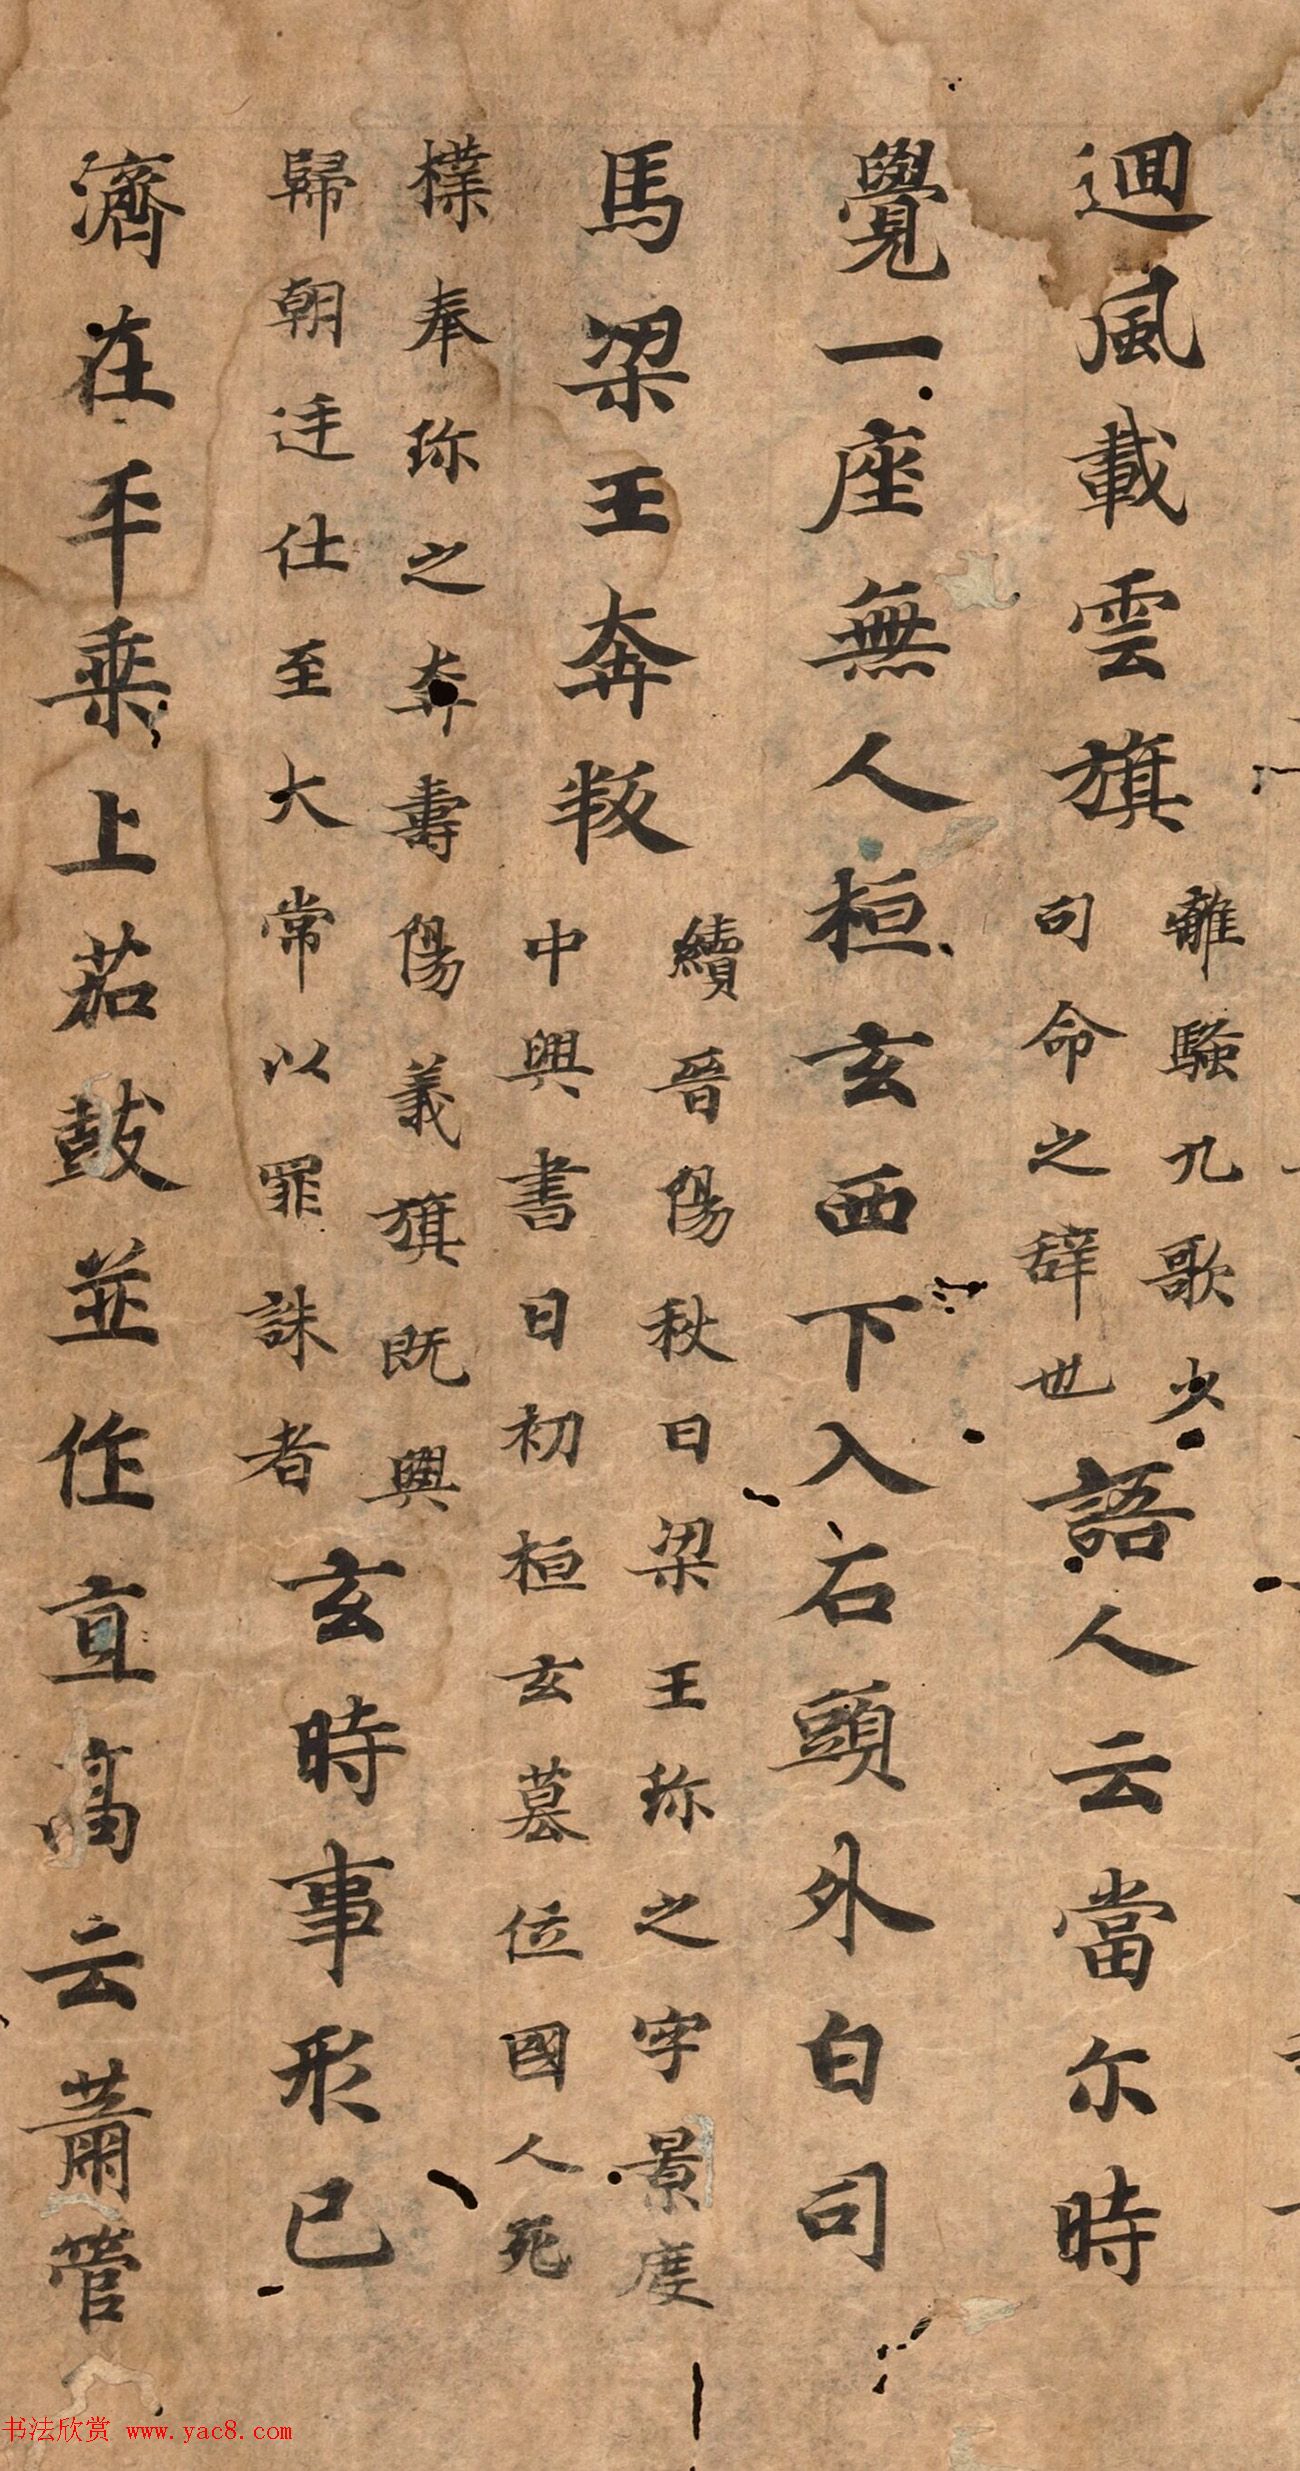 迴風載雲旗離騷九歌少司命之辞也語人云當尓時
覺一座無人桓玄西下入石頭外白司
馬梁王奔叛續晉陽秋曰梁王珎之字景度
中興書曰初桓玄墓位國人孔
樸奉珎之奔壽陽義旗既興
歸朝廷仕至大常以罪誅者玄時事形已
濟在平乗上茄鼓並作直髙云蕭管
书法欣赏 www.yac8.com